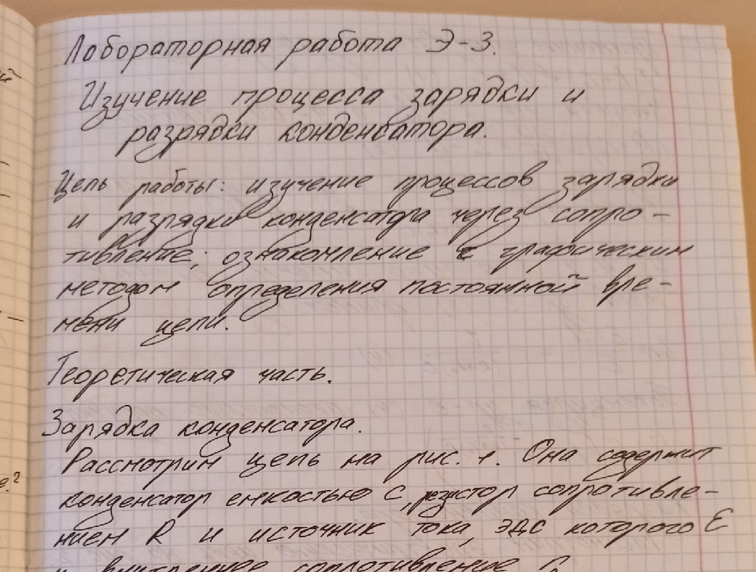 Лабораторная работа Э-3.
Изучение процесса зарядки и
разрядки конденсатора.
Цель работы: изучение процессов зарядки
и разрядки конденсатора через сопро-
тивление; ознакомление с графическим
методом определения постоянной вре-
мени цепи.
Теоретическая часть.
Зарядка конденсатора.
Рассмотрим цепь на рис. 1. Она содержит
конденсатор емкостью C, резистор сопротивле-
нием R и источник тока, ЭДС которого ε
и внутреннее сопротивление